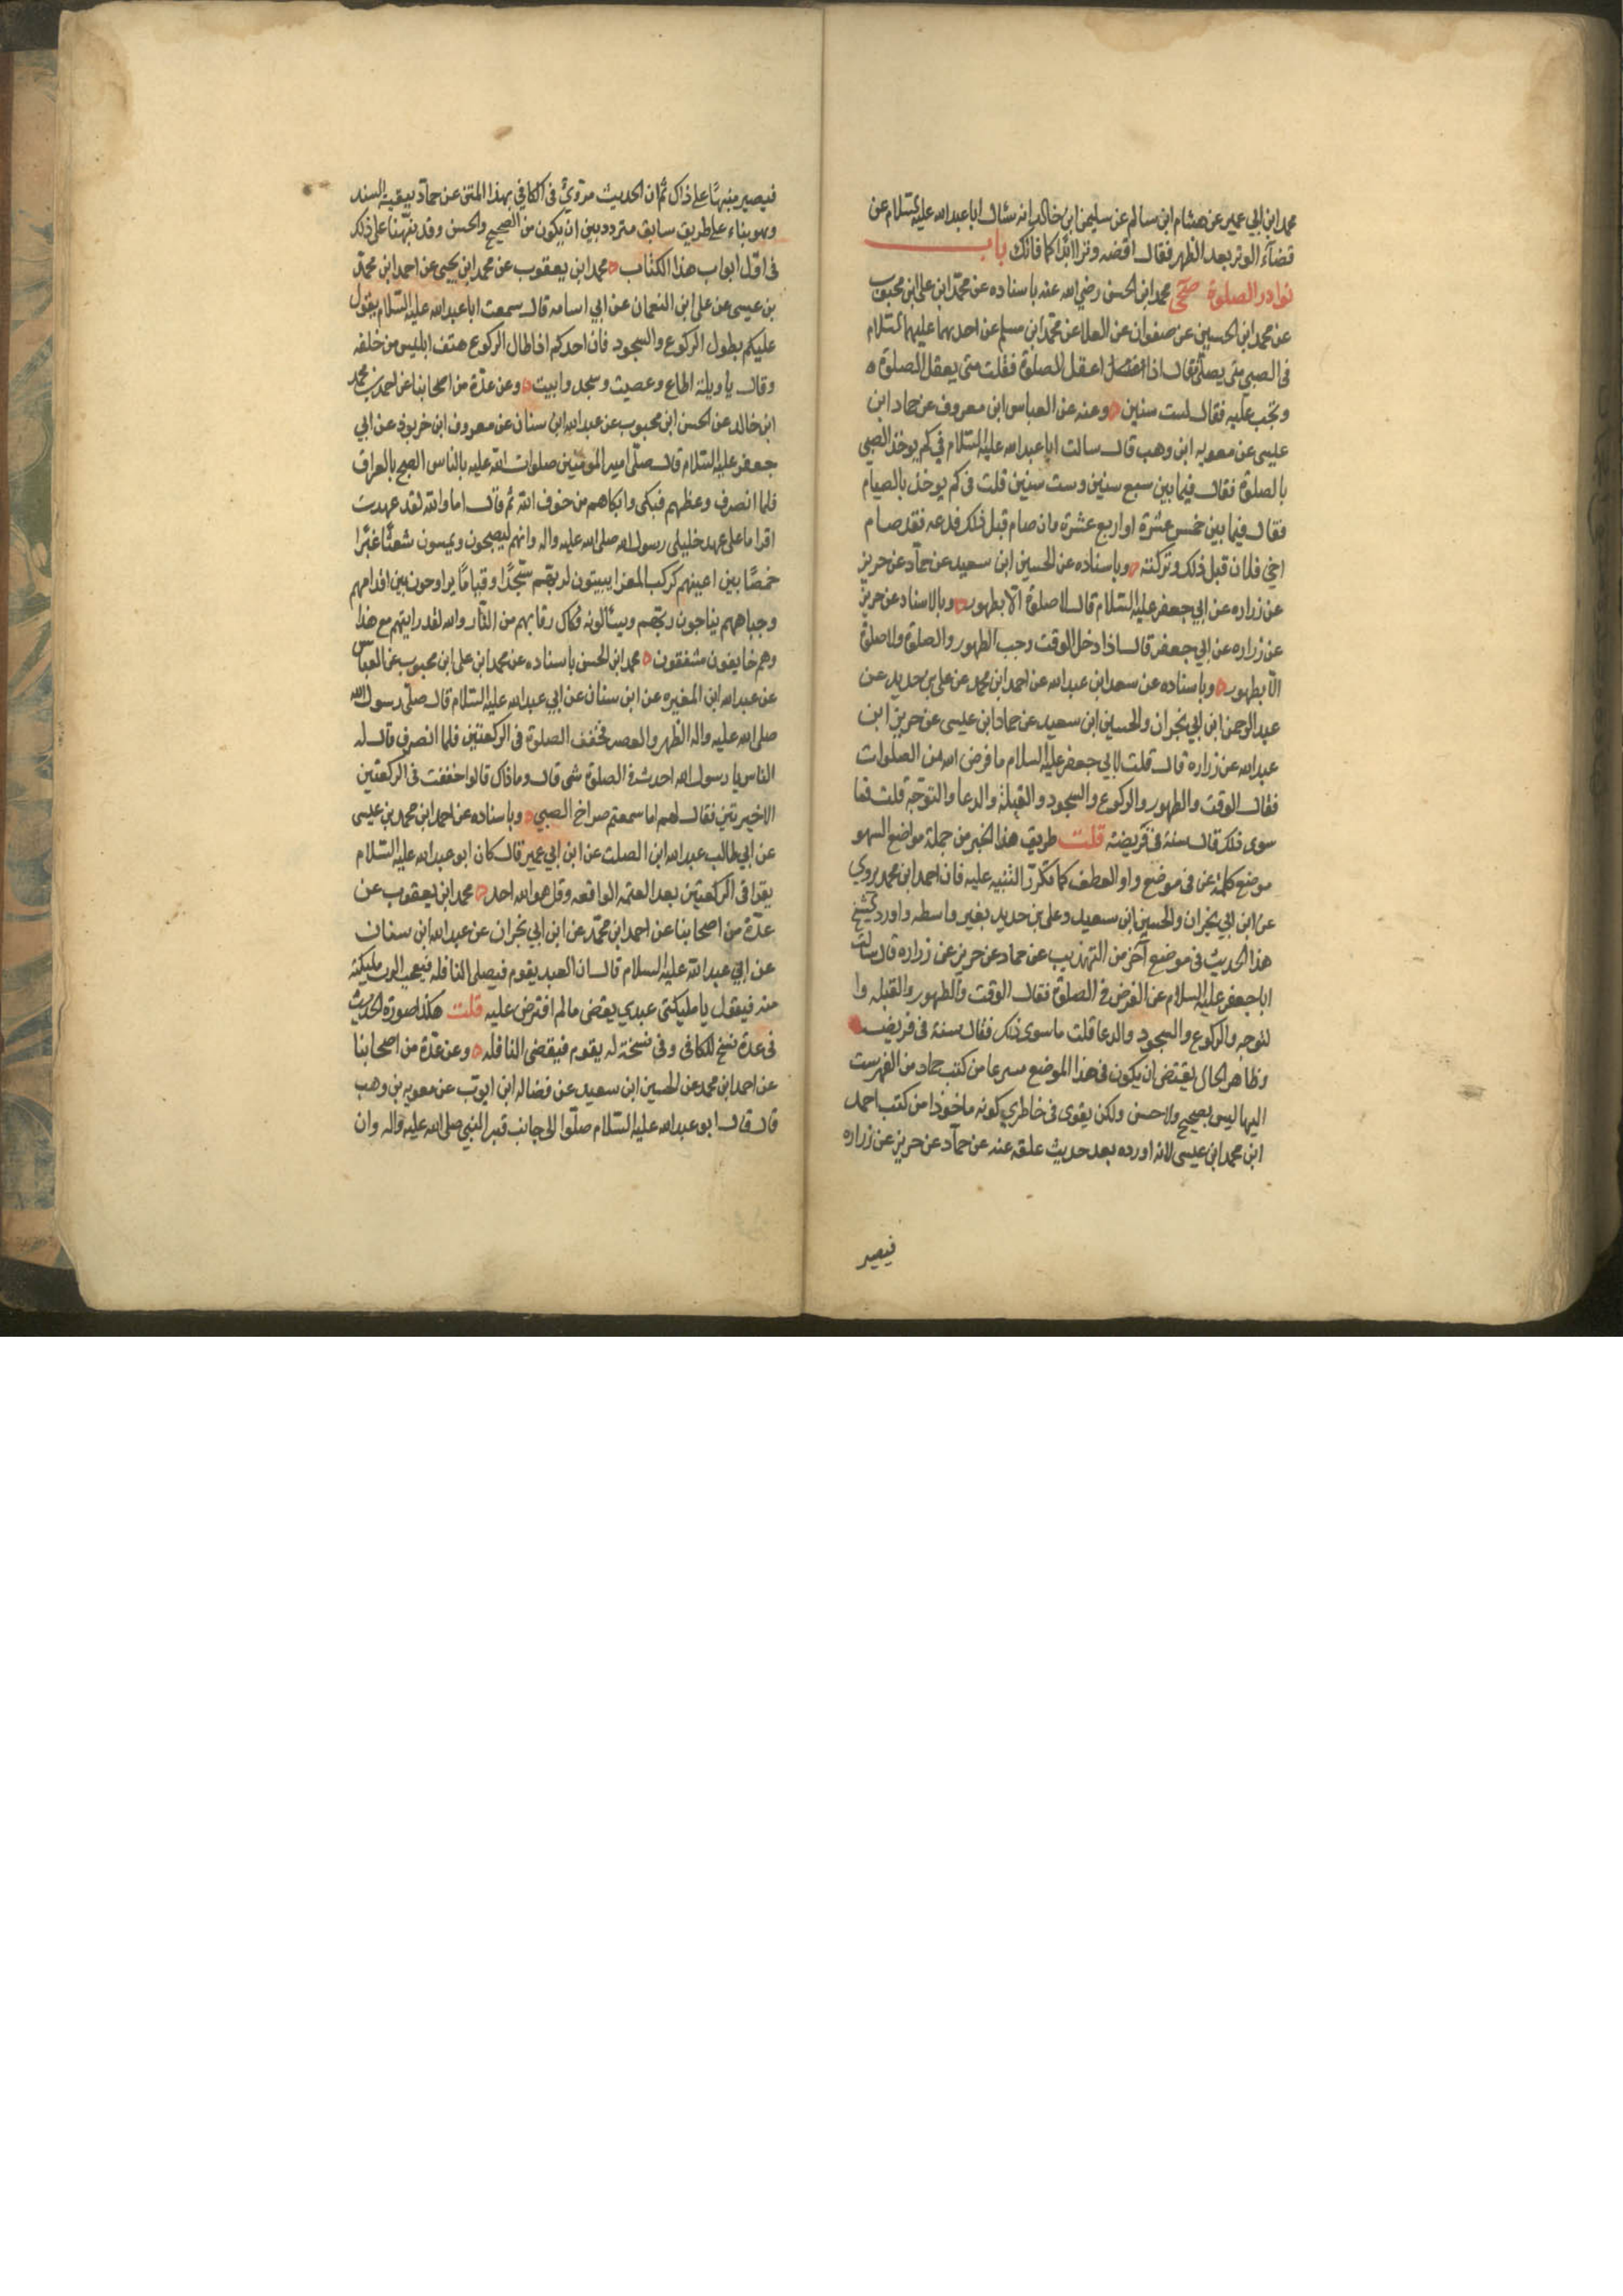 محمد ابن ابي عمير عن هشام ابن سالم عن سليمن ابن خالد انه سئال ابا عبد الله عليه السلام عن
قضآء الوتر بعد الظهر فقال اقضه وترا ابدا كما فاتك باب
نوادر الصلوة صحي محمد ابن الحسن رضي الله عنه باسناده عن محمد ابن علي ابن محبوب
عن محمد ابن الحسين عن صفوان عن العلا عن محمد ابن مسلم عن احدهما عليهما السلام
في الصبي متى يصلي فقال اذا عقل الصلوة فقلت متى يعقل الصلوة
وتجب عليه فقال لست سنين وعنه عن العباس ابن معروف عن حماد ابن
عيسى عن معويه ابن وهب قال سالت ابا عبد الله عليه السلام في كم يوخذ الصبي
بالصلوة فقال فيما بين سبع سنين وست سنين قلت في كم يوخذ بالصيام
فقال فيما بين خمس عشرة او اربع عشرة وان صام قبل ذلك فدعه فقد صام
ابني فلان قبل ذلك وتركته وباسناده عن الحسين ابن سعيد عن حمآد عن حريز
عن زراره عن ابي جعفر عليه السلام قال لا صلوة الا بطهور وبالاسناد عن حريز
عن زراره عن ابي جعفر قال اذا دخل الوقت وجب الطهور والصلوة ولا صلوة
الا بطهور وباسناده عن سعد ابن عبد الله عن احمد ابن محمد عن علي بن حديد عن
عبد الرحمن ابن ابي نجران والحسين ابن سعيد عن حماد ابن عيسى عن حريز ابن
عبد الله عن زراره قال قلت لابي جعفر عليه السلام ما فرض الله من الصلوات
فقال الوقت والطهور والركوع والسجود والقبلة والدعا والتوجه قلت فما
سوى ذلك قال سنة في فريضة قلت طريق هذا الخبر من جملة مواضع السهو
موضع كلمة عن في موضع واو العطف كما تكرر التنبيه عليه فان احمد ابن محمد يروي
عن ابن ابي نجران والحسين ابن سعيد وعلي بن حديد بغير واسطه واورد الشيخ
هذا الحديث في موضع آخر من التهذيب عن حماد عن حريز عن زراره قال سالت
ابا جعفر عليه السلام عن الفرض في الصلوة فقال الوقت والطهور والقبله وا
لتوجه والركوع والسجود والدعا قلت ما سوى ذلك فقال سنة في فريضة
وظاهر الحال يقتضي ان يكون في هذا الموضع من كتب حماد من الفهرست
اليها ليس بصحيح ولا حسن ولكن يقوى في خاطري كونه ماخوذا من كتب احمد
ابن محمد ابن عيسى لانه اورده بعد حديث علقه عنه عن حمآد عن حريز عن زراره
فيصير
فيصير منبهًا على ذاك ثم ان الحديث مروي في الكافي بهذا المتن عن حماد ببقية السند
وهو بناء على طريق سابق متردد بين ان يكون من الصحيح والحسن وقد نبهنا على ذلك
في اول ابواب هذا الكتاب محمد ابن يعقوب عن محمد ابن يحيى عن احمد ابن محمد
بن عيسى عن علي ابن النعمان عن ابي اسامه قال سمعت ابا عبد الله عليه السلام يقول
عليكم بطول الركوع والسجود فان احدكم اذا طال الركوع هتف ابليس من خلفه
وقال يا ويلة اطاع وعصيت وسجد وابيت وعن عدة من اصحابنا عن احمد بن محمد
ابن خالد عن الحسن ابن محبوب عن عبد الله ابن سنان عن معروف ابن خربوذ عن ابي
جعفر عليه السلام قال صلى امير المومنين صلوات الله عليه بالناس الصبح بالعراق
فلما انصرف وعظهم فبكى وابكاهم من خوف الله ثم قال اما والله لقد عهدت
اقواما على عهد خليلي رسول الله صلى الله عليه واله وانهم ليصبحون ويمسون شعثًا غبرًا
خمصًا بين اعينهم كركب المعزا يبيتون لربهم سجدًا وقيامًا يراوحون بين اقدامهم
وجباههم يناجون ربهم ويسألونه فكاك رقابهم من النار والله لقد رايتهم مع هذا
وهم خايفون مشفقون محمد ابن الحسن باسناده عن محمد ابن علي ابن محبوب عن العباس
عن عبد الله ابن المغيره عن ابن سنان عن ابي عبد الله عليه السلام قال صلى رسول الله
صلى الله عليه واله الظهر والعصر فخفف الصلوة في الركعتين فلما انصرف قال له
الناس يا رسول الله احدث في الصلوة شي قال وما ذاك قالوا خففت في الركعتين
الاخيرتين فقال لهم اما سمعتم صراخ الصبي وباسناده عن احمد ابن محمد بن عيسى
عن ابي طالب عبد الله ابن الصلت عن ابن ابي عمير قال كان ابو عبد الله عليه السلام
يقرا في الركعتين بعد العتمه الواقعه وقل هو الله احد محمد ابن يعقوب عن
عدة من اصحابنا عن احمد ابن محمد عن ابن ابي نجران عن عبد الله ابن سنان
عن ابي عبد الله عليه السلام قال ان العبد يقوم فيصلي النافله فيعجب الرب مليكته
منه فيقول يا مليكتي عبدي يقضي ما لم افترض عليه قلت هكذا صورة الحديث
في عدة نسخ للكافي وفي نسخة له يقوم فيقضي النافله وعن عدة من اصحابنا
عن احمد ابن محمد عن الحسين ابن سعيد عن فضاله ابن ايوب عن معويه بن وهب
قال قال ابو عبد الله عليه السلام صلوا الى جانب قبر النبي صلى الله عليه واله وان